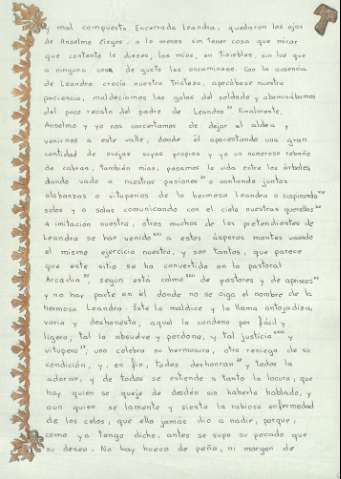 y mal compuesta. Encerrada Leandra, quedaron los ojos
de Anselmo ciegos, a lo menos sin tener cosa que mirar
que contento le diese; los míos, en tinieblas, sin luz que
a ninguna cosa de gusto les encaminase. Con la ausencia
de Leandra crecía nuestra tristeza, apocábase nuestra
paciencia, maldecíamos las galas del soldado y abominábamos
del poco recato del padre de Leandra. Finalmente,
Anselmo y yo nos concertamos de dejar el aldea y
venirnos a este valle, donde él apacentando una gran
cantidad de ovejas suyas propias y yo un numeroso rebaño
de cabras, también mías, pasamos la vida entre los árboles,
dando vado a nuestras pasiones o cantando juntos
alabanzas o vituperios de la hermosa Leandra o suspirando
solos y a solas comunicando con el cielo nuestras querellas.
A imitación nuestra, otros muchos de los pretendientes de
Leandra se han venido a estos ásperos montes usando
el mismo ejercicio nuestro, y son tantos, que parece
que este sitio se ha convertido en la pastoral
Arcadia, según está colmo de pastores y de apriscos,
y no hay parte en él donde no se oiga el nombre de la
hermosa Leandra. Este la maldice y la llama antojadiza,
varia y deshonesta; aquel la condena por fácil y
ligera; tal la absuelve y perdona, y tal justicia y
vitupera; uno celebra su hermosura, otro reniega de su
condición, y, en fin, todos deshonran y todos la
adoran, y de todos se estiende a tanto la locura, que
hay quien se queje de desdén sin haberle hablado, y
aun quien se lamente y sienta la rabiosa enfermedad
de los celos, que ella jamás dio a nadie, porque,
como ya tengo dicho, antes se supo su pecado que
su deseo. No hay hueco de peña, ni margen de